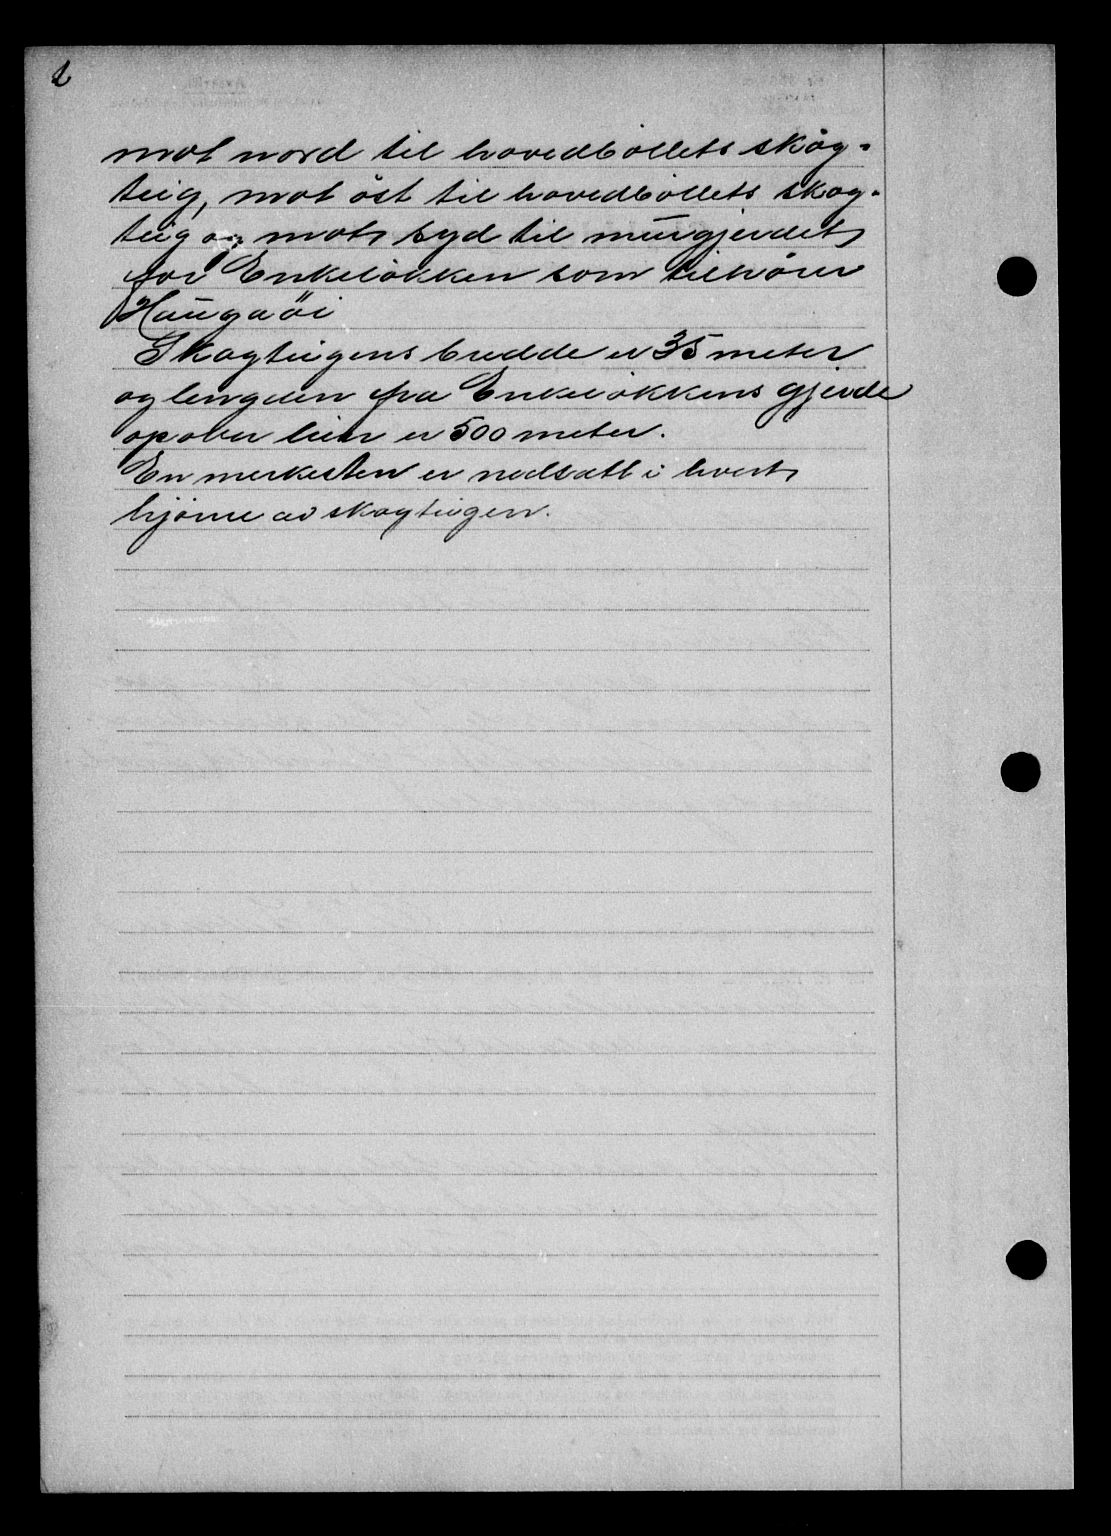 2
mot nord til hovedböllets skog-
teig, mot öst til hovedböllets skog-
teig og mot syd til murgjerdet
for Enkelökken som tilhörer
Haugaöi
Skogteigens bredde er 35 meter
og lengden fra Enkelökkens gjerde
opover lien er 500 meter.
En merkesten er nedsatt i hvert
hjörne av skogteigen.